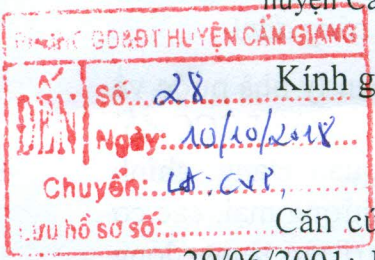 huyện Cẩ
PHÒNG GD&ĐT HUYỆN CẨM GIÀNG
ĐẾN
Số: 28
Kính g
Ngày: 10/10/2018
Chuyển:
Lưu hồ sơ số:
Căn cứ
29/06/2001;